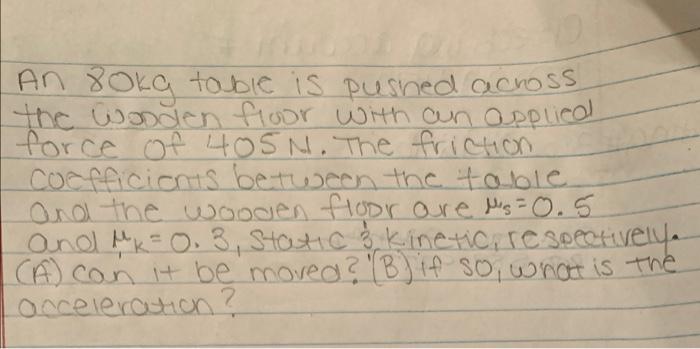 An 80kg table is pushed across
the wooden floor with an applied
force of 405 N. The friction
coefficients between the table
and the wooden floor are μs=0.5
and μk=0.3, static & kinetic, respectively.
(A) can it be moved? (B) if so, what is the
acceleration?